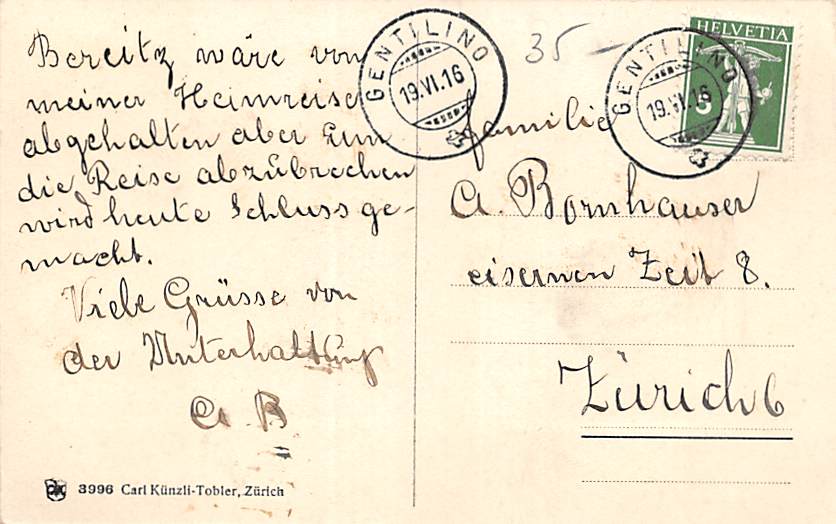 Bereitz wäre von
meiner Heimreise
abgehalten aber um
die Reise abzubrechen
wird heute Schluss ge-
macht.
Viele Grüsse von
der Unterhaltung
A B
3996 Carl Künzli-Tobler, Zürich
GENTILINO
19.VI.16
35 –
GENTILINO
19.VI.16
HELVETIA
5
Familie
A. Bornhauser
eisernen Zeit 8.
Zürich 6